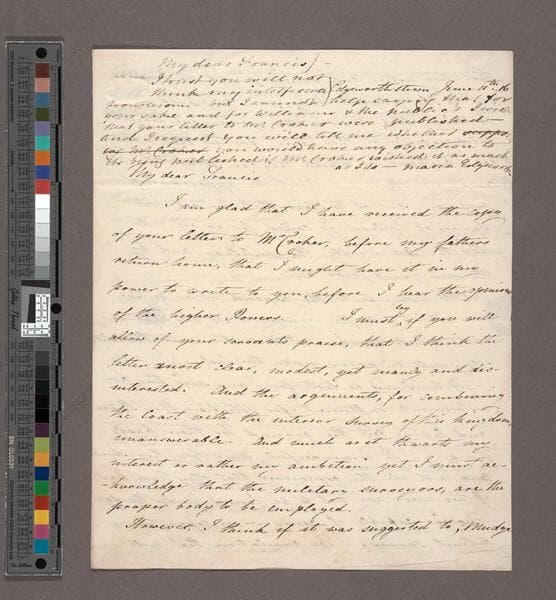 My dear Francis -
I trust you will not
think my interference
Edgeworthstown June 11th 16
troublesome but I cannot help saying that for
your sake and for Williams & the public's I wish
that your letter to Mr Croker were published -
and I request you will tell me whether suppo
Mr Croker you would have any objection to
its being published if Mr Croker wished it as much
as I do - Maria Edgeworth
My dear Francis
I am glad that I have received the copy
of your letter to Mr Croker, before my fathers
return home, that I might have it in my
power to write to you, before I hear the opinion
of the higher Powers. I must say, if you will
allow of your servants praise, that I think the
letter most clear, modest, yet manly and dis-
interested. And the arguments, for combining
the Coast with the interior survey of this kingdom,
unanswerable. And much as it thwarts my
interest or rather my ambition yet I must ac-
-knowledge that the military surveyors, are the
proper body to be employed.
However, I think if it was suggested to, Mudge